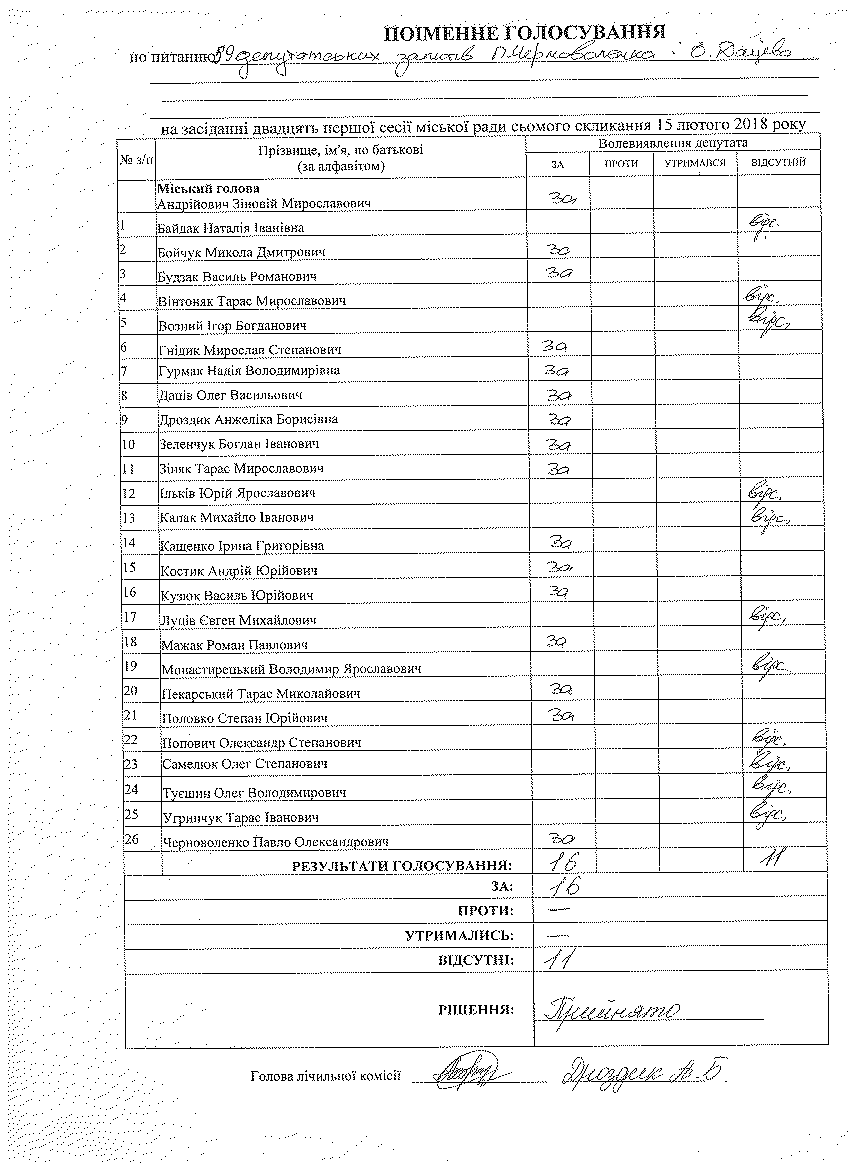 ПОІМЕННЕ ГОЛОСУВАННЯ
по питанню 59 депутатських запитів П.Черноволенка О. Даціва
на засіданні двадцять першої сесії міської ради сьомого скликання 15 лютого 2018 року
№ з/п Прізвище, ім'я, по батькові (за алфавітом) Волевиявлення депутата
ЗА ПРОТИ УТРИМАВСЯ ВІДСУТНІЙ
Міський голова
Андрійович Зіновій Мирославович За
1 Байдак Наталія Іванівна відс.
2 Бойчук Микола Дмитрович За
3 Будзак Василь Романович За
4 Вінтоняк Тарас Мирославович відс.
5 Возний Ігор Богданович відс.
6 Гнідик Мирослав Степанович За
7 Гурмак Надія Володимирівна За
8 Даців Олег Васильович За
9 Дроздик Анжеліка Борисівна За
10 Зеленчук Богдан Іванович За
11 Зіняк Тарас Мирославович За
12 Ільків Юрій Ярославович відс.
13 Капак Михайло Іванович відс.
14 Кащенко Ірина Григорівна За
15 Костик Андрій Юрійович За
16 Кузюк Василь Юрійович За
17 Луців Євген Михайлович відс.
18 Мажак Роман Павлович За
19 Монастирецький Володимир Ярославович відс.
20 Пекарський Тарас Миколайович За
21 Половко Степан Юрійович За
22 Попович Олександр Степанович відс.
23 Самелюк Олег Степанович відс.
24 Туєшин Олег Володимирович відс.
25 Угринчук Тарас Іванович відс.
26 Черноволенко Павло Олександрович За
РЕЗУЛЬТАТИ ГОЛОСУВАННЯ: 16 11
ЗА: 16
ПРОТИ: —
УТРИМАЛИСЬ: —
ВІДСУТНІ: 11
РІШЕННЯ: Прийнято
Голова лічильної комісії Дроздик А.Б